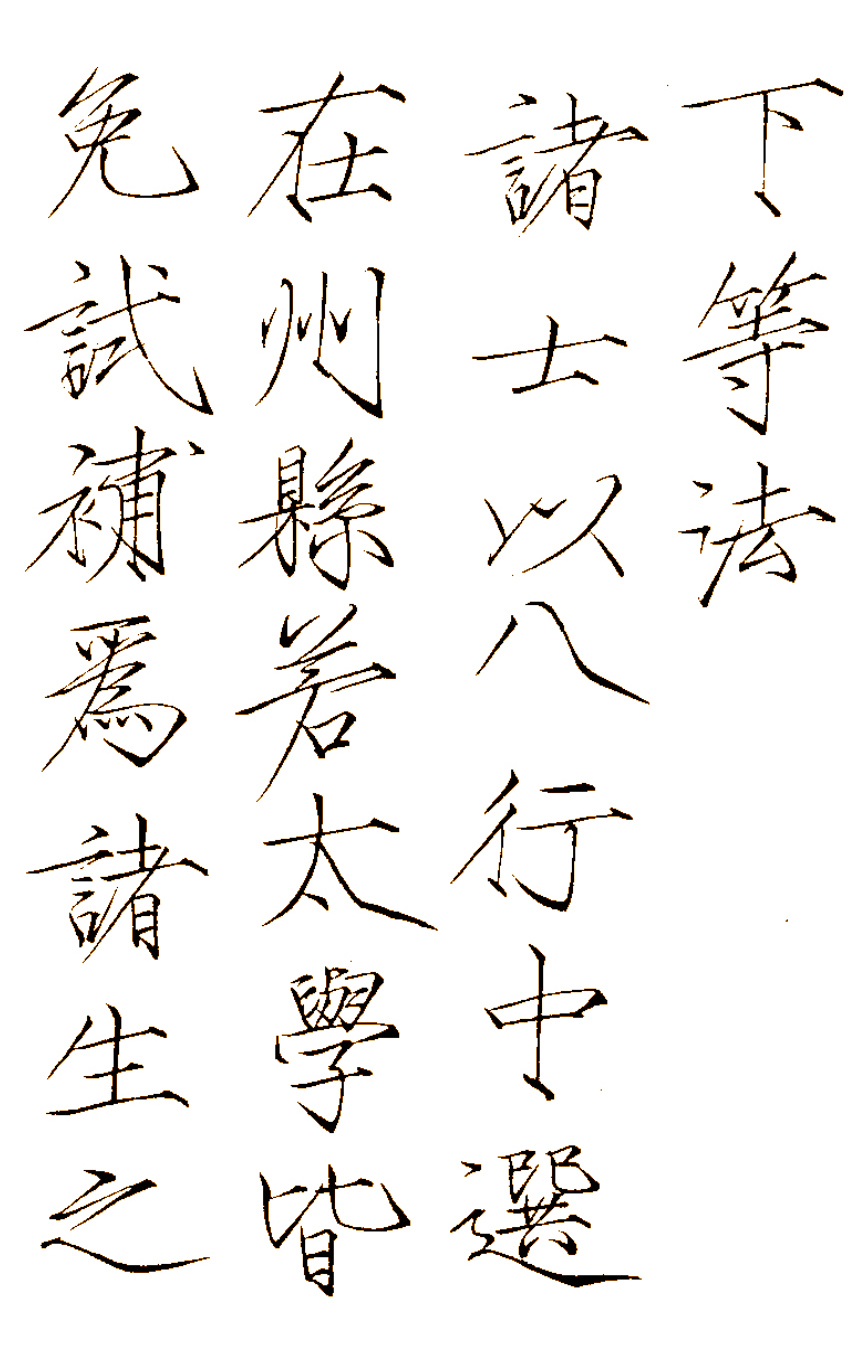 下等法
諸士以八行中選
在州縣若太學皆
免試補爲諸生之